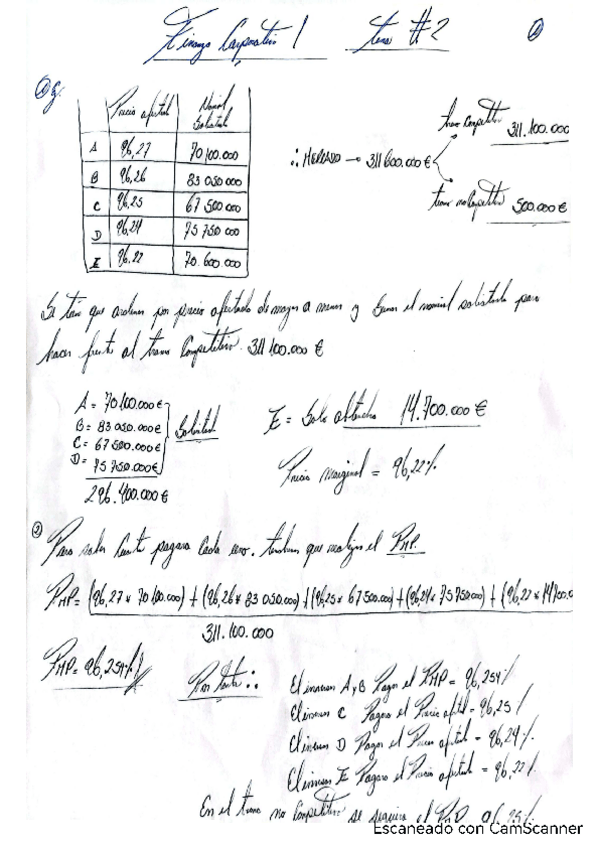 Finanzas Corporativas 1 Tema #2 ①
Precio ofertado Nominal Solicitado
A 96,27 70 100.000
B 96,26 83 050 000
C 96,25 67 500 000
D 96,24 75 750 000
E 96,22 70.600.000
tramo Competitivo 311.100.000
∴ MERCADO → 311 600.000 €
tramo no Competitivo 500.000 €
Se tiene que ordenar por precio ofertado de mayor a menor y sumar el nominal solicitado para
hacer frente al tramo Competitivo. 311.100.000 €
A = 70.100.000 €
B = 83 050.000 €
C = 67 500.000 €
D = 75 750.000 €
Solicitado
296.400.000 €
E = Solo obtendra 14.700.000 €
Precio marginal = 96,22%
② Para saber Cuanto pagara Cada uno. tendremos que realizar el PMP.
PMP = (96,27 * 70 100.000) + (96,26 * 83 050.000) + (96,25 * 67 500.000) + (96,24 * 75 750 000) + (96,22 * 14 700.0
311.100.000
PMP = 96,254%
Por tanto ∴
El inversor A y B Pagan el PMP = 96,254%
El inversor C Pagara el Precio ofertado = 96,25%
El inversor D Pagara el Precio ofertado = 96,24%
El inversor E Pagara el Precio ofertado = 96,22%.
En el tramo no Competitivo se
Escaneado con CamScanner